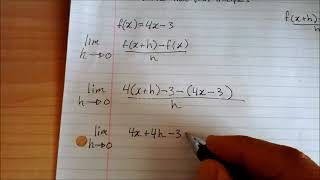 f(x)=4x-3
lim h→0 f(x+h)-f(x) / h
lim h→0 4(x+h)-3-(4x-3) / h
lim h→0 4x+4h-3